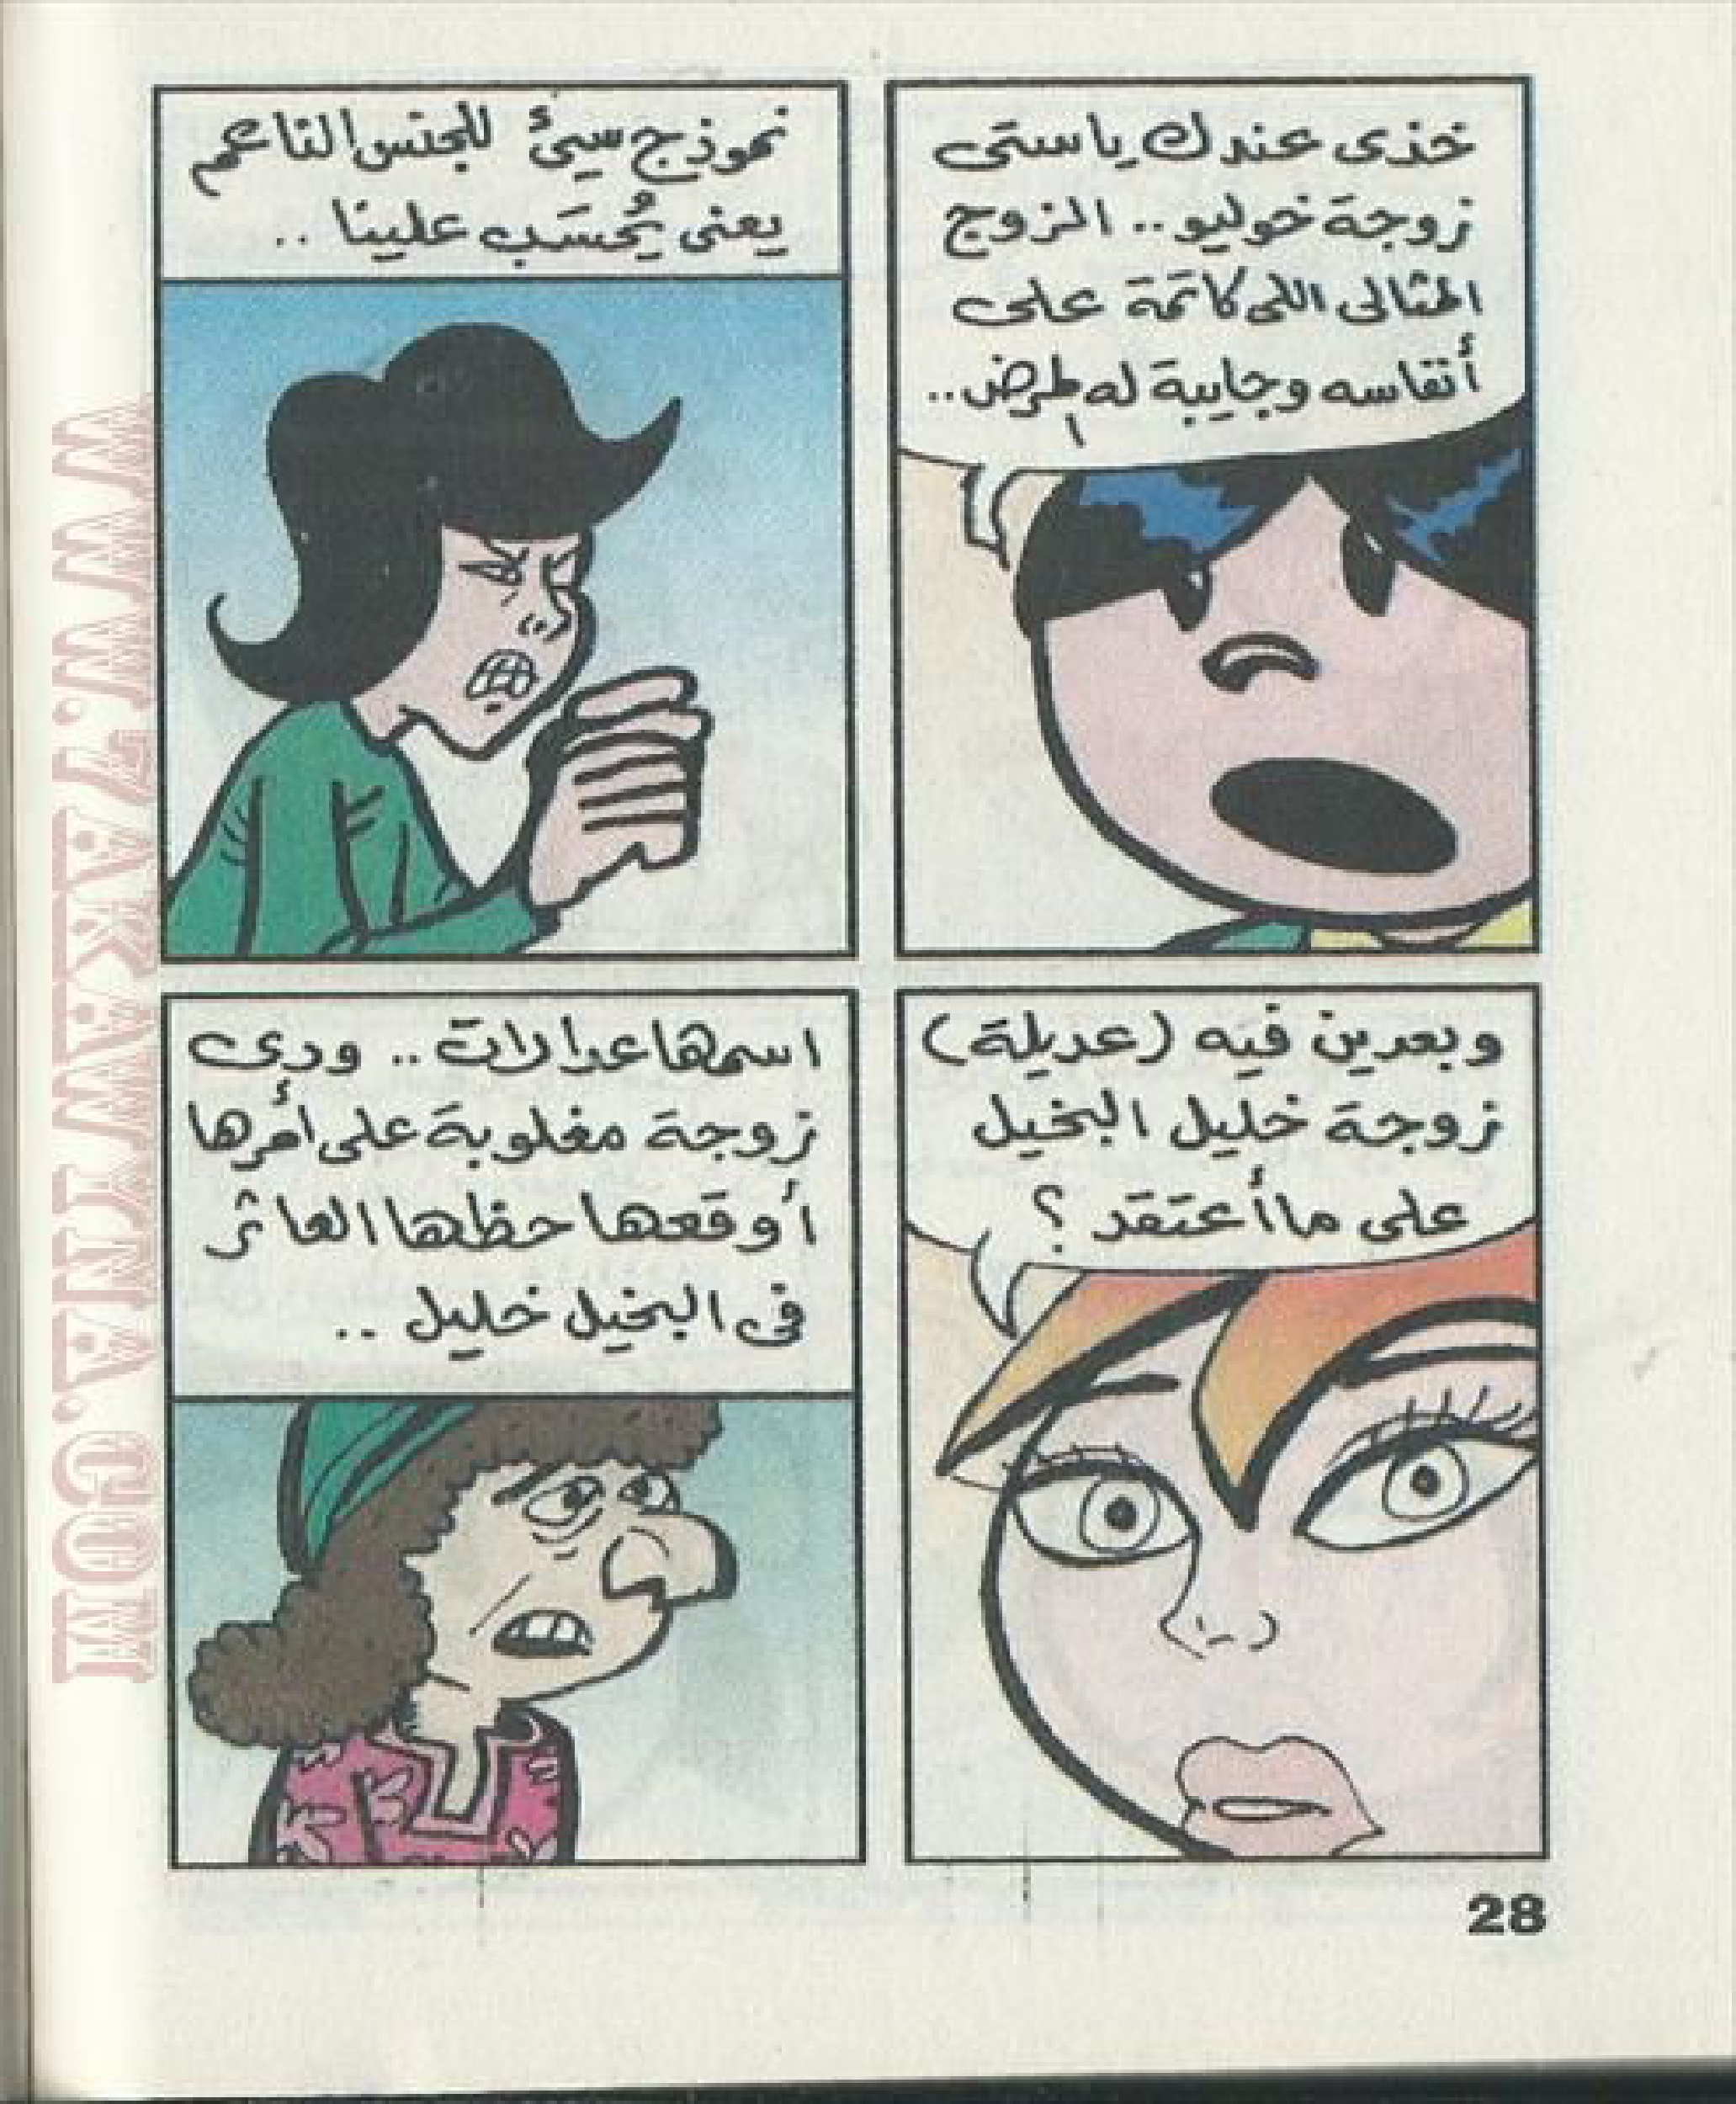 خذى عندك ياستى
زوجة خوليو.. الزوج
المثالى اللى كاتمة على
أنفاسه وجايبة له المرض..
نموذج سيئ للجنس الناعم
يعنى يُحسَب علينا ..
وبعدين فيه (عديلة)
زوجة خليل البخيل
على ما أعتقد ؟
اسمها عدالات .. ودى
زوجة مغلوبة على أمرها
أوقعها حظها العاثر
فى البخيل خليل ..
28
WWW.TARAWTNA.COM